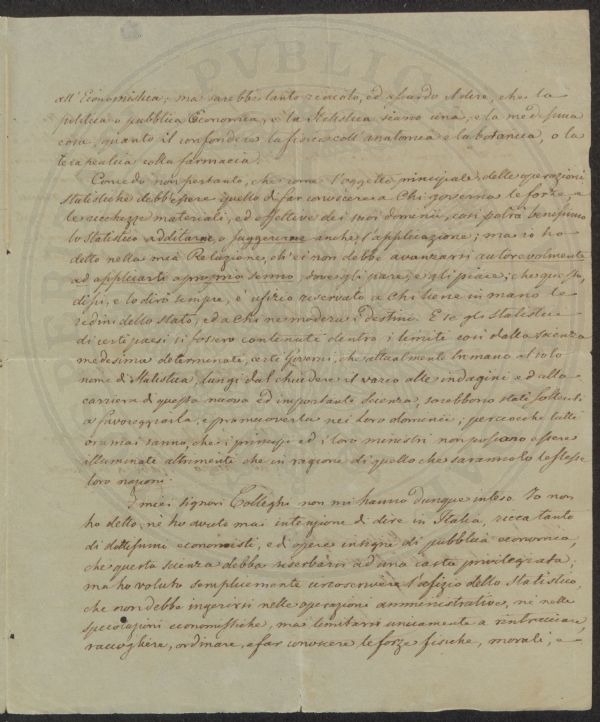 PVBLIC
all' Economistica; ma sarebbe tanto ed assurdo il dire, che la
politica o pubblica Economia, e la Statistica siano una, e la medesima
cosa, quanto il confondere la fisica coll' anatomia e la botanica, o la
terapeutica colla farmacia.
Convedo non pertanto, che come l'oggetto principale, delle operazioni
statistiche debb' essere quello di far conoscere a Chi governa le forze, e
le ricchezze materiali, ed effettive dei suoi dominii, così potrà benissimo
lo Statistico additarne, o suggerirne anche l'applicazione; ma io ho
detto nella mia Relazione, ch'ei non debbe avanzarsi autorevolmente
ad applicarli a proprio senno dove gli pare, e gli piace; che questo,
dissi, e lo dirò sempre, è ufizio reservato a chi tiene in mano le
redini dello stato, ed a chi ne modera i destini. E se gli Statistici
di certi paesi si fossero contenuti dentro i limiti così dalla scienza
medesima determinati, certi Governi, che attualmente tremano al solo
nome di Statistica, lungi dal chiudere il varco alle indagini e alla
carriera di questa nuova ed importante Scienza, sarebbero stati solleciti
a favoreggiarla, e promuoverla nei loro dominii; perciocchè tutti
oramai sanno, che i principi ed i loro ministri non possono essere
illuminati altrimenti che in ragione di quello che saranno le stesse
loro nazioni.
I miei signori Colleghi non mi hanno dunque inteso. Io non
ho detto, nè ho avuto mai intenzione di dire in Italia, ricca tanto
di dottissimi economisti, e di opere insigni di pubblica economia,
che questa scienza debba riserbarsi ad una casta privilegiata;
ma ho voluto semplicemente circoscrivere l'ufizio dello Statistico,
che non debbe ingerirsi nelle operazioni amministrative, nè nelle
speculazioni economistiche, ma limitarsi unicamente a rintracciare,
raccogliere, ordinare, e far conoscere le forze fisiche, morali, e